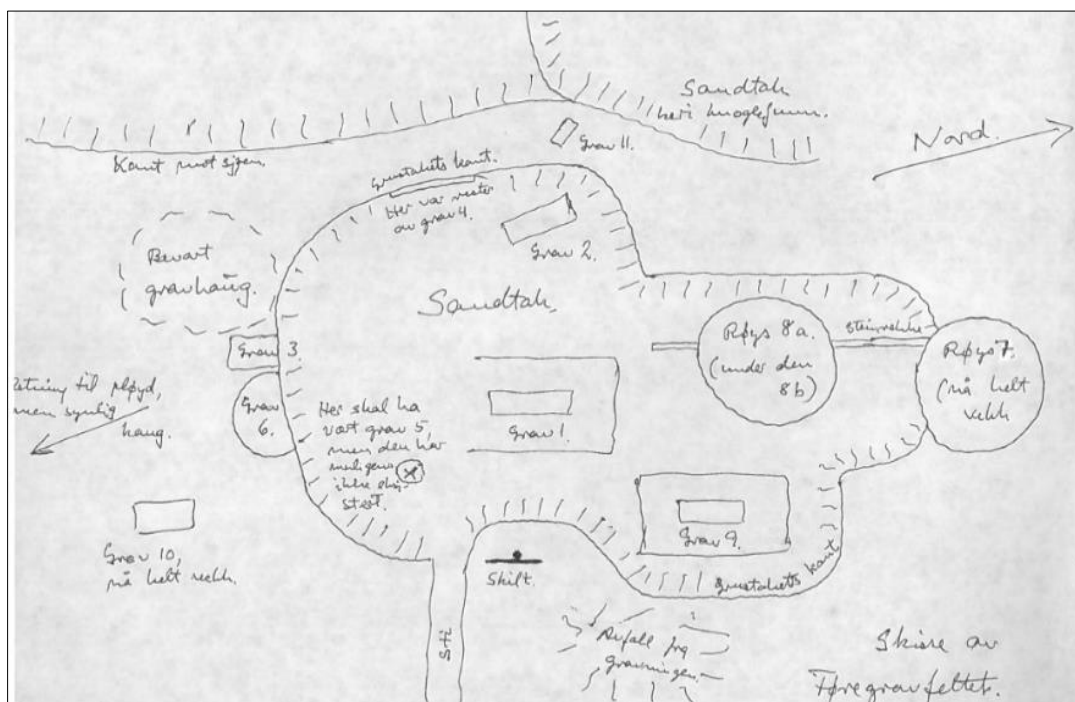 Sandtak
heri knoglefunn.
Nord.
Kant mot sjøen.
Grav 11.
Grustakets kant.
Her var rester
av grav 4.
Grav 2.
Bevart
gravhaug.
Sandtak.
Grav 3.
Røys 8a.
(under den
8b)
steinrekke
Røys 7.
(nå helt
vekk
Retning til pløyd,
men synlig
haug.
Grav
6.
Her skal ha
vært grav 5,
men den har
muligens
ikke
Grav 1.
Grav 9.
Grav 10,
nå helt vekk.
Skilt.
Grustakets kant
Sti
Avfall fra
gravningen.
Skisse av
Føregravfeltet.